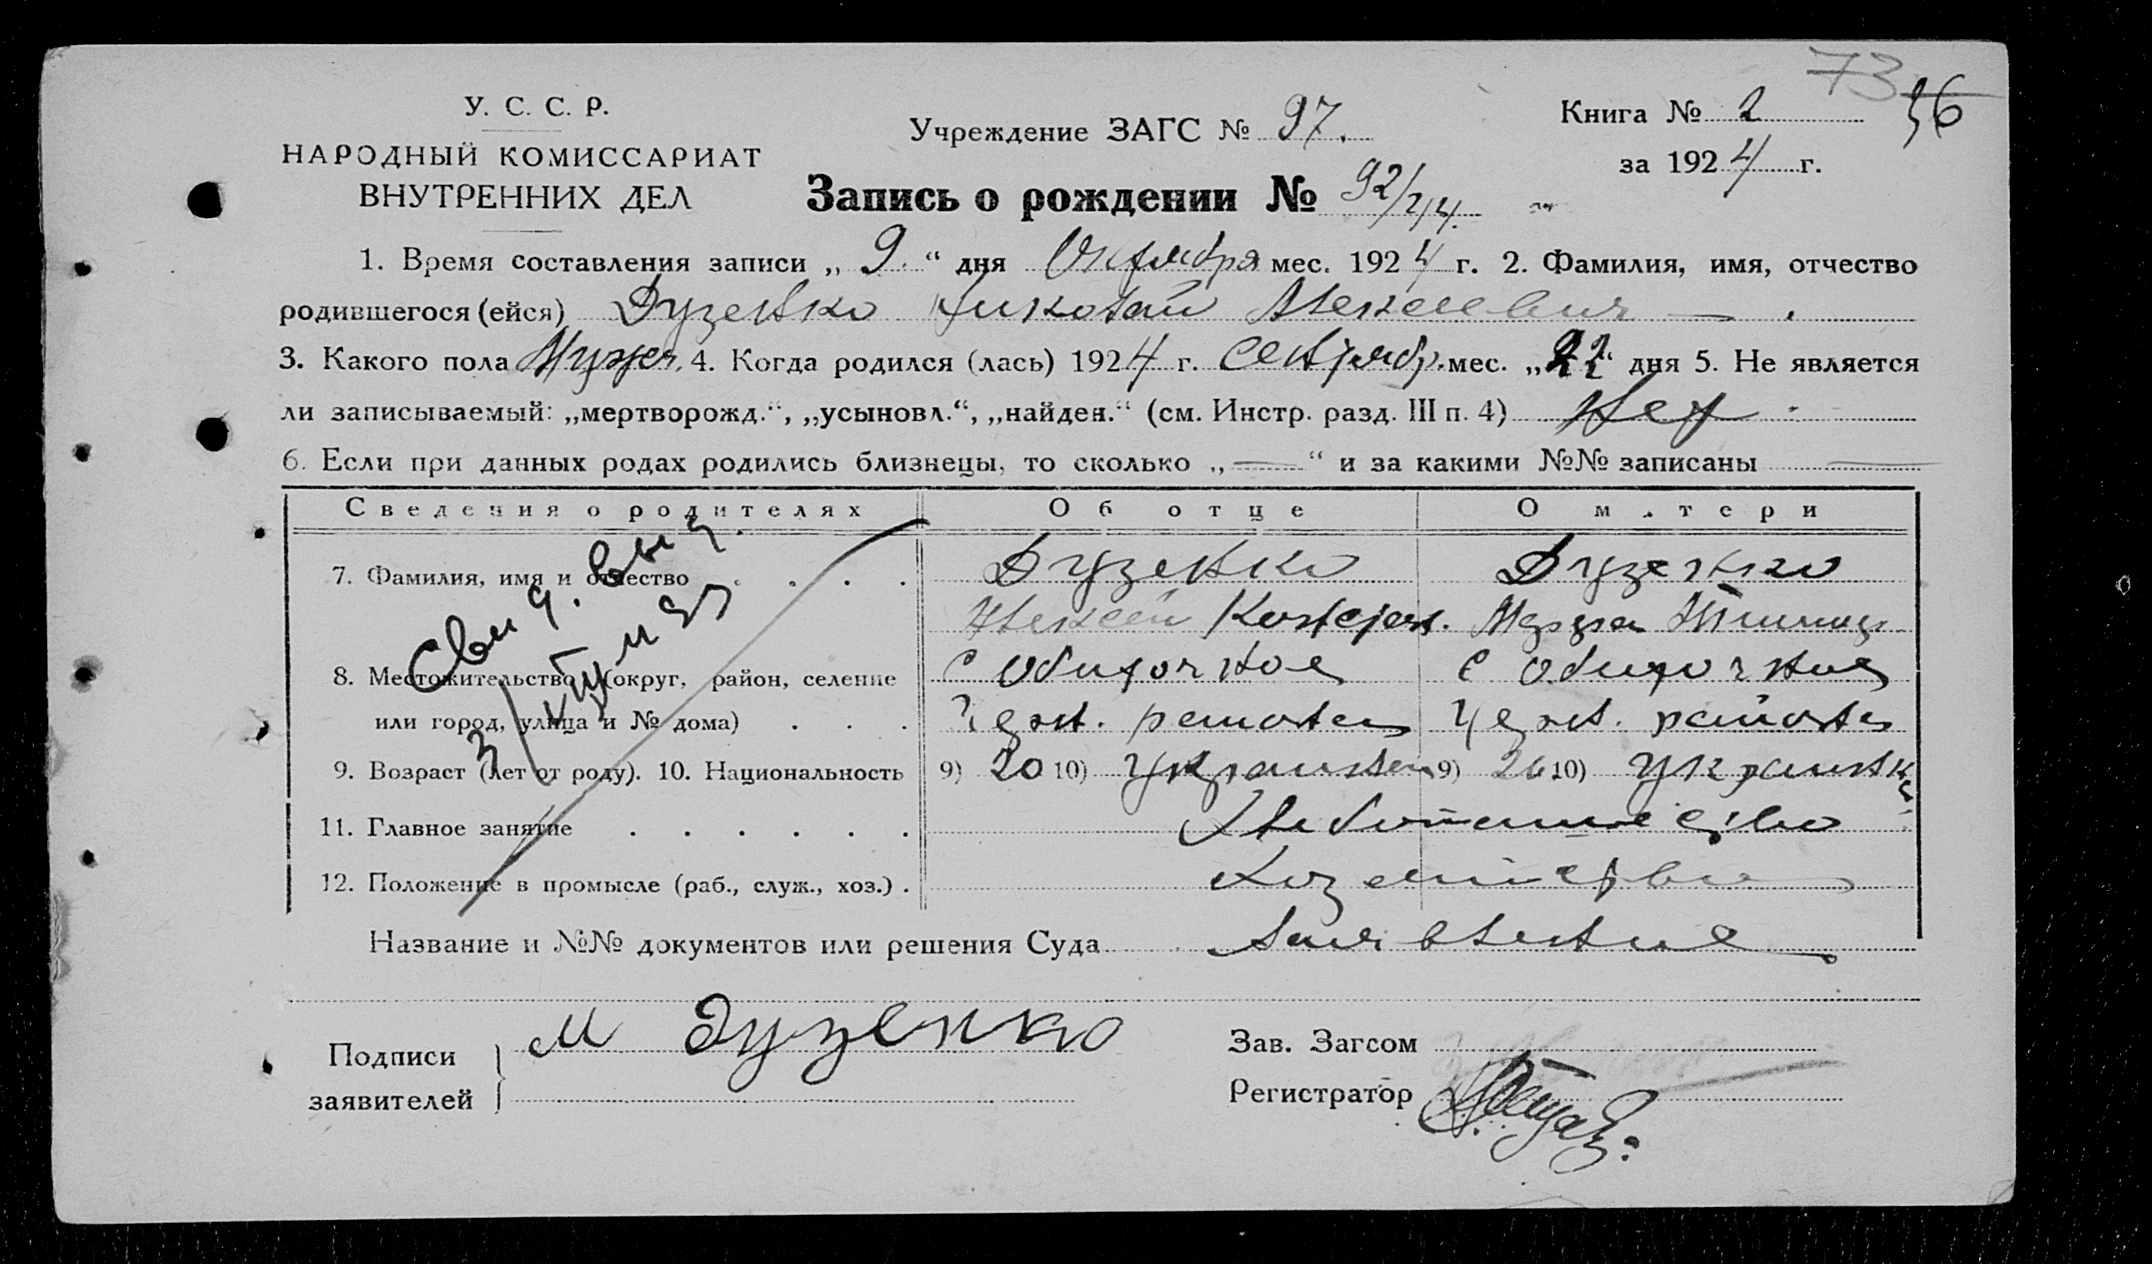 73 36
У. С. С. Р.
НАРОДНЫЙ КОМИССАРИАТ
ВНУТРЕННИХ ДЕЛ
Учреждение ЗАГС № 97.
Книга № 2
за 1924 г.
Запись о рождении №
1. Время составления записи „ 9. “ дня Октября мес. 1924 г. 2. Фамилия, имя, отчество
родившегося (ейся) Дузенко Николай Алексеевич
3. Какого пола Мужск. 4. Когда родился (лась) 1924 г. Сентябр. мес. „22“ дня 5. Не является
ли записываемый: „мертворожд.“, „усыновл.“, „найден.“ (см. Инстр. разд. III п. 4) Нет
6. Если при данных родах родились близнецы, то сколько „—“ и за какими №№ записаны —
Сведения о родителях Об отце О матери
7. Фамилия, имя и отчество Дузенко Дузенко
Алексей
8. Местожительство (округ, район, селение с Обиточное с Обиточное
или город, улица и № дома) района района
9. Возраст (лет от роду). 10. Национальность 9) 20 10) Украинец 9) 26 10) Украинка
11. Главное занятие Хлебопашество
12. Положение в промысле (раб., служ., хоз.)
Название и №№ документов или решения Суда
Свид. выд.
Подписи
заявителей
М Дузенко
Зав. Загсом
Регистратор